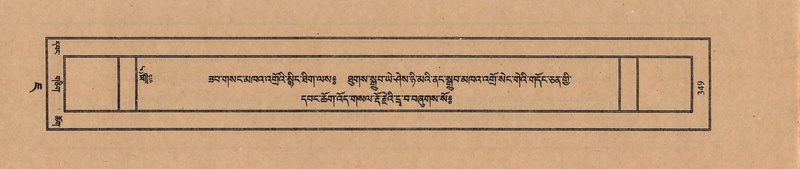 ཟབ་གསང་མཁའ་འགྲོའི་སྙིང་ཐིག་ལས༔ ཐུགས་སྒྲུབ་ཡེ་ཤེས་ཉི་མའི་ནང་སྒྲུབ་མཁའ་འགྲོ་སེང་གེའི་གདོང་ཅན་གྱི་
དབང་ཆོག་འོད་གསལ་རྡོ་རྗེའི་དྲྭ་བ་བཞུགས་སོ༔
349